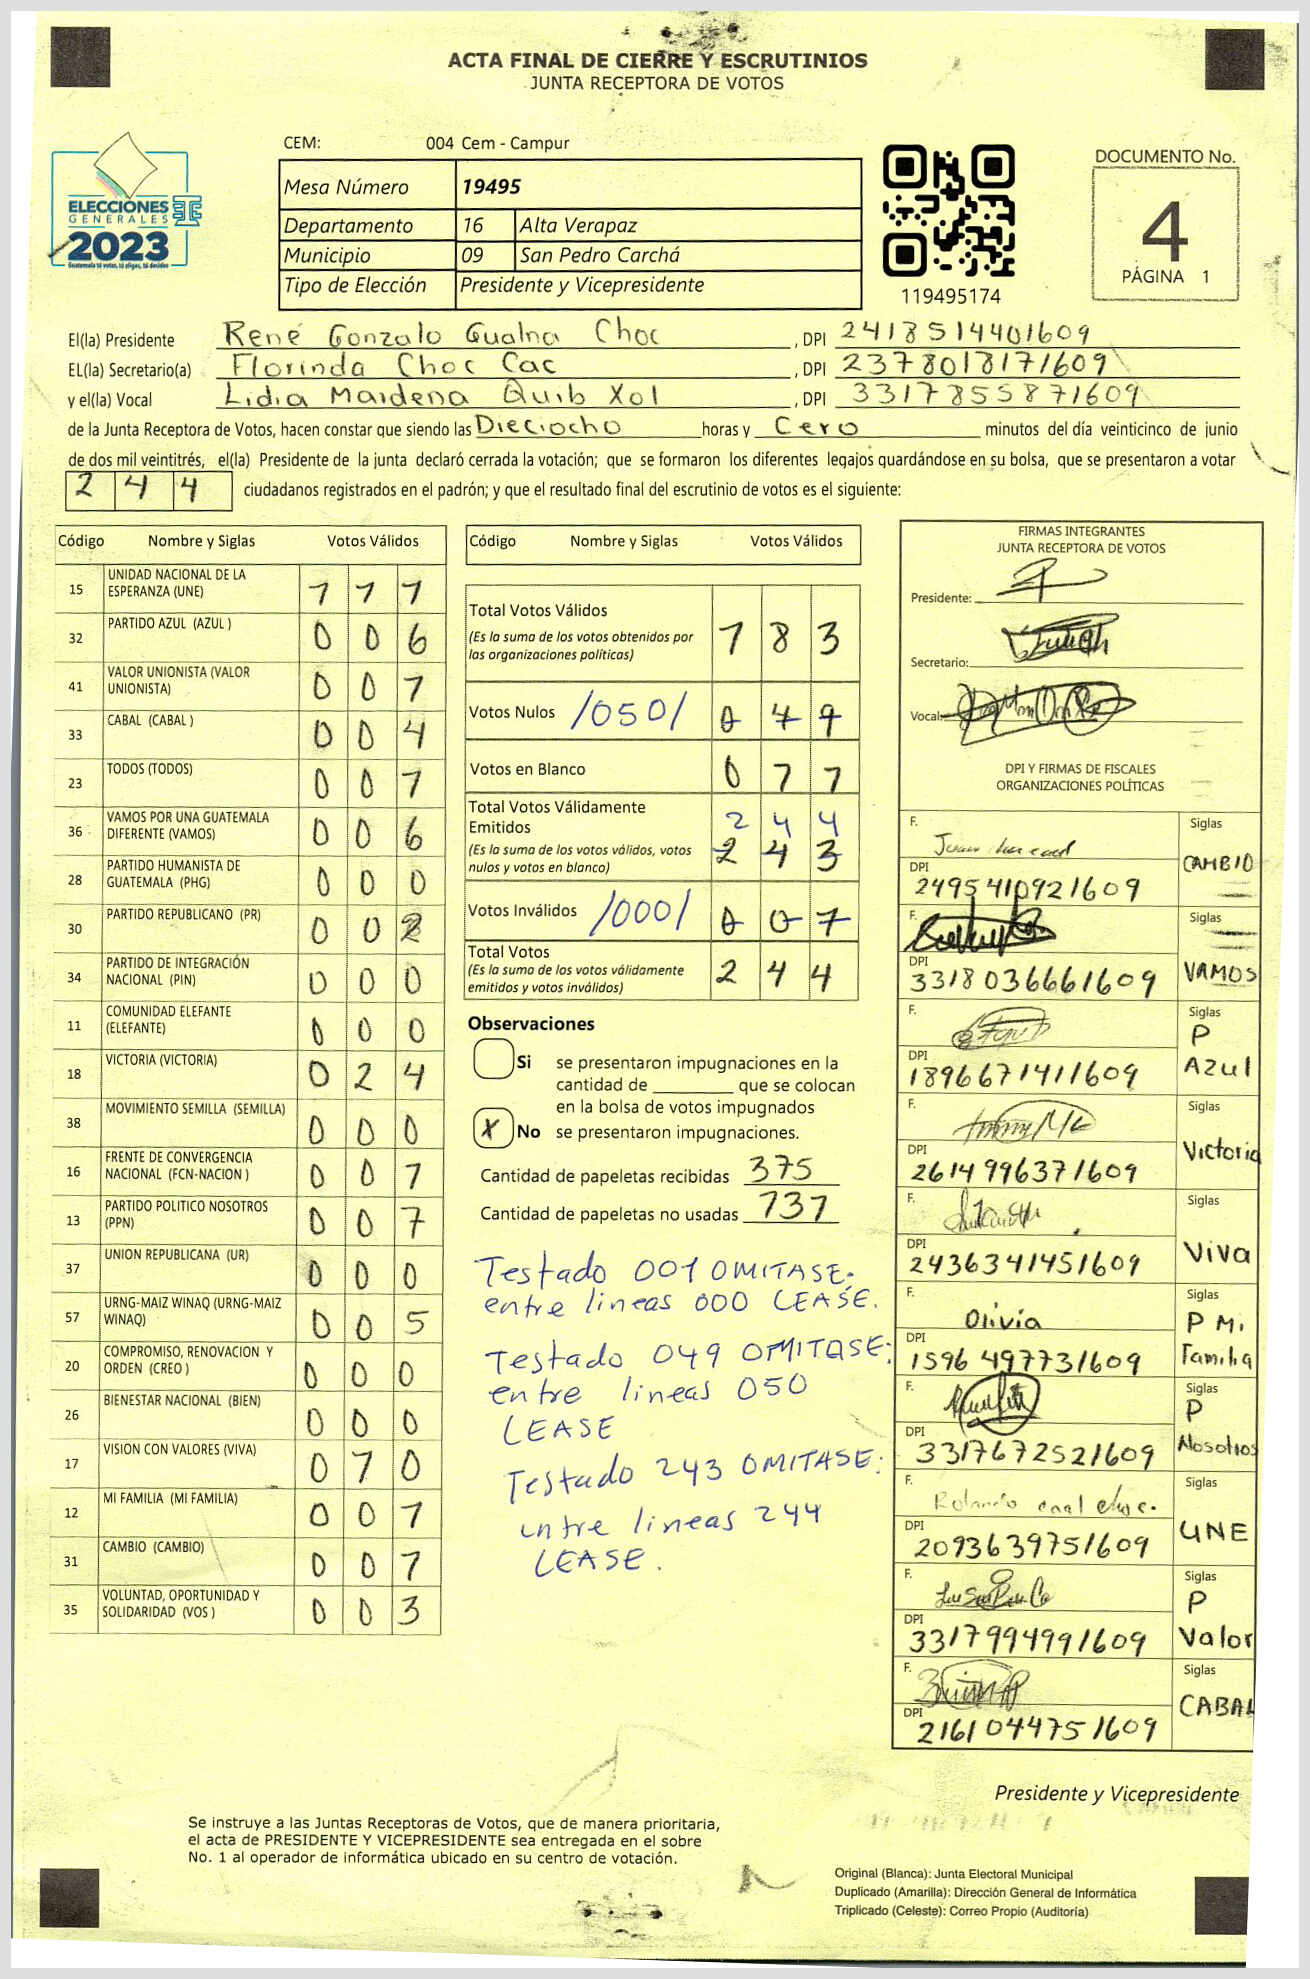 ACTA FINAL DE CIERRE Y ESCRUTINIOS
JUNTA RECEPTORA DE VOTOS
ELECCIONES
GENERALES
2023
Guatemala tú votas, tú eliges, tú decides
CEM: 004 Cem - Campur
Mesa Número 19495
Departamento 16 Alta Verapaz
Municipio 09 San Pedro Carchá
Tipo de Elección Presidente y Vicepresidente
119495174
DOCUMENTO No.
4
PÁGINA 1
El(la) Presidente René Gonzalo Gualna Choc , DPI 2418514401609
EL(la) Secretario(a) Florinda Choc Cac , DPI 2378018171609
y el(la) Vocal Lidia Maidena Quib Xol , DPI 3317855871609
de la Junta Receptora de Votos, hacen constar que siendo las Dieciocho horas y Cero minutos del día veinticinco de junio
de dos mil veintitrés, el(la) Presidente de la junta declaró cerrada la votación; que se formaron los diferentes legajos quardándose en su bolsa, que se presentaron a votar
2 4 4 ciudadanos registrados en el padrón; y que el resultado final del escrutinio de votos es el siguiente:
Código Nombre y Siglas Votos Válidos
15 UNIDAD NACIONAL DE LA
ESPERANZA (UNE) 1 1 1
32 PARTIDO AZUL (AZUL ) 0 0 6
41 VALOR UNIONISTA (VALOR
UNIONISTA) 0 0 1
33 CABAL (CABAL ) 0 0 4
23 TODOS (TODOS) 0 0 1
36 VAMOS POR UNA GUATEMALA
DIFERENTE (VAMOS) 0 0 6
28 PARTIDO HUMANISTA DE
GUATEMALA (PHG) 0 0 0
30 PARTIDO REPUBLICANO (PR) 0 0 2
34 PARTIDO DE INTEGRACIÓN
NACIONAL (PIN) 0 0 0
11 COMUNIDAD ELEFANTE
(ELEFANTE) 0 0 0
18 VICTORIA (VICTORIA) 0 2 4
38 MOVIMIENTO SEMILLA (SEMILLA) 0 0 0
16 FRENTE DE CONVERGENCIA
NACIONAL (FCN-NACION ) 0 0 1
13 PARTIDO POLITICO NOSOTROS
(PPN) 0 0 7
37 UNION REPUBLICANA (UR) 0 0 0
57 URNG-MAIZ WINAQ (URNG-MAIZ
WINAQ) 0 0 5
20 COMPROMISO, RENOVACION Y
ORDEN (CREO ) 0 0 0
26 BIENESTAR NACIONAL (BIEN) 0 0 0
17 VISION CON VALORES (VIVA) 0 1 0
12 MI FAMILIA (MI FAMILIA) 0 0 1
31 CAMBIO (CAMBIO) 0 0 1
35 VOLUNTAD, OPORTUNIDAD Y
SOLIDARIDAD (VOS ) 0 0 3
Código Nombre y Siglas Votos Válidos
Total Votos Válidos
(Es la suma de los votos obtenidos por
las organizaciones políticas) 1 8 3
Votos Nulos /050/ 0 4 9
Votos en Blanco 0 1 1
Total Votos Válidamente
Emitidos 2 4 4
(Es la suma de los votos válidos, votos
nulos y votos en blanco) 2 4 3
Votos Inválidos /000/ 0 0 1
Total Votos
(Es la suma de los votos válidamente
emitidos y votos inválidos) 2 4 4
Observaciones
Si se presentaron impugnaciones en la
cantidad de ________ que se colocan
en la bolsa de votos impugnados
X No se presentaron impugnaciones.
Cantidad de papeletas recibidas 375
Cantidad de papeletas no usadas 131
Testado 001 OMITASE:
entre lineas 000 LEASE.
Testado 049 OMITASE:
entre lineas 050
LEASE
Testado 243 OMITASE:
entre lineas 244
LEASE.
FIRMAS INTEGRANTES
JUNTA RECEPTORA DE VOTOS
Presidente:
Secretario:
Vocal:
DPI Y FIRMAS DE FISCALES
ORGANIZACIONES POLÍTICAS
F. Siglas
DPI 2495410921609 CAMBIO
F. Siglas
DPI 3318036661609 VAMOS
F. Siglas
DPI 1896671411609 P Azul
F. Siglas
DPI 2614996371609 Victoria
F. Siglas
DPI 2436341451609 Viva
F. Olivia Siglas
DPI 1596497731609 P Mi Familia
F. Siglas
DPI 3317672521609 P Nosotros
F. Rolando Siglas
DPI 2093639751609 UNE
F. Siglas
DPI 3317994991609 P Valor
F. Siglas
DPI 2161044751609 CABAL
Presidente y Vicepresidente
Se instruye a las Juntas Receptoras de Votos, que de manera prioritaria,
el acta de PRESIDENTE Y VICEPRESIDENTE sea entregada en el sobre
No. 1 al operador de informática ubicado en su centro de votación.
Original (Blanca): Junta Electoral Municipal
Duplicado (Amarilla): Dirección General de Informática
Triplicado (Celeste): Correo Propio (Auditoría)